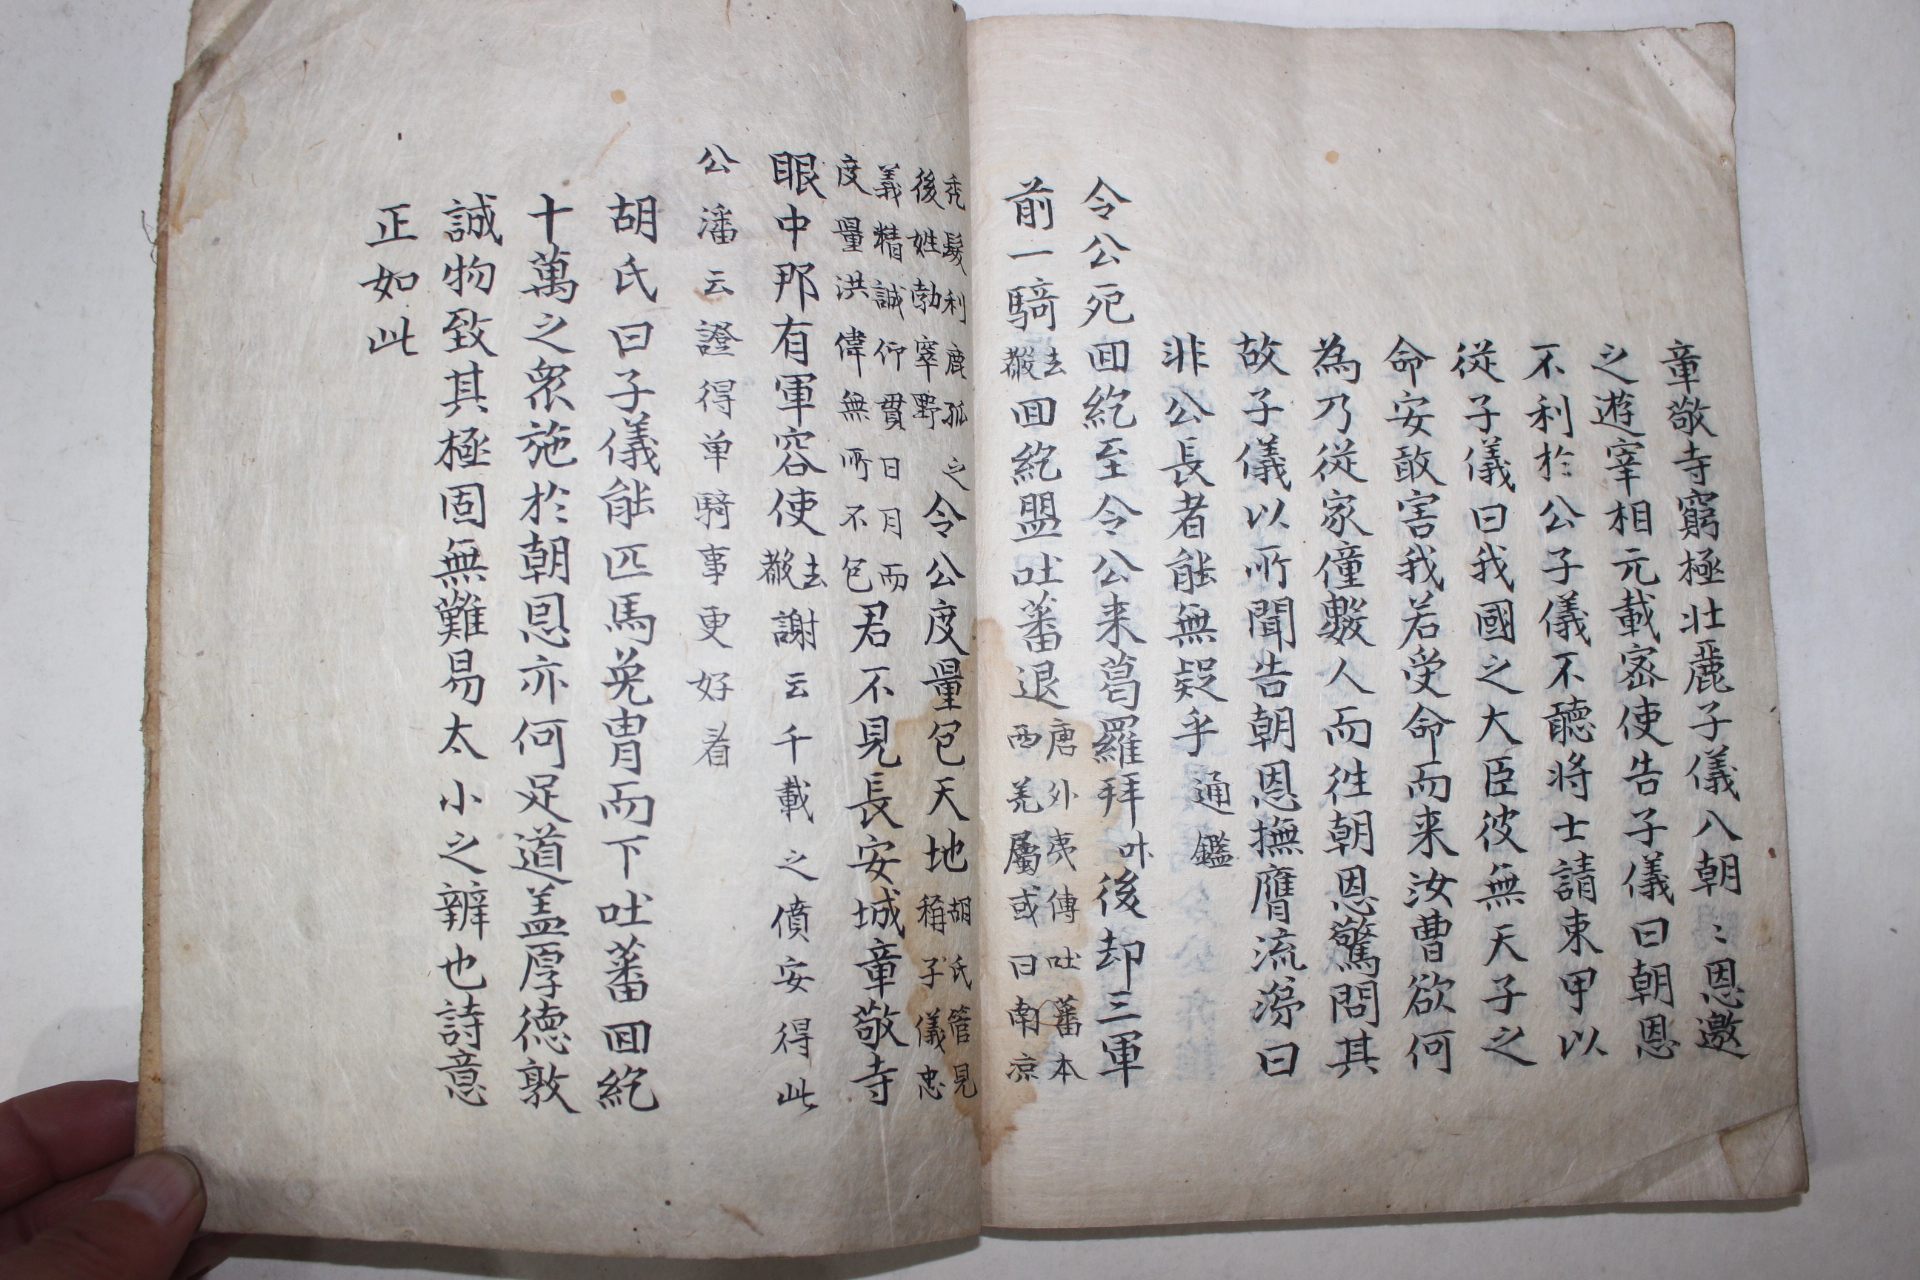 章敬寺窮極壯麗子儀八朝〻恩邀
之遊宰相元載密使告子儀曰朝恩
不利於公子儀不聽将士請束甲以
從子儀曰我國之大臣彼無天子之
命安敢害我若受命而来汝曹欲何
為乃從家僮數人而徃朝恩驚問其
故子儀以所聞告朝恩撫膺流涕曰
非公長者能無疑乎通鑑
令公死囬紇至令公来葛羅拜叶後却三軍
前一騎去㪚囬紇盟吐蕃退唐外夷傳吐蕃本
西羌屬或曰南凉
禿髮利鹿孤之
後姓勃窣野
令公度量包天地胡氏管見
稱子儀忠
義精誠行貫日月而
度量洪偉無所不包
君不見長安城章敬寺
眼中那有軍容使去㪚謝云千載之僨安得此
公潘云證得单騎事更好看
胡氏曰子儀能匹馬免胄而下吐蕃囬紇
十萬之衆施於朝恩亦何足道盖厚德敦
誠物致其極固無難易太小之辨也詩意
正如此